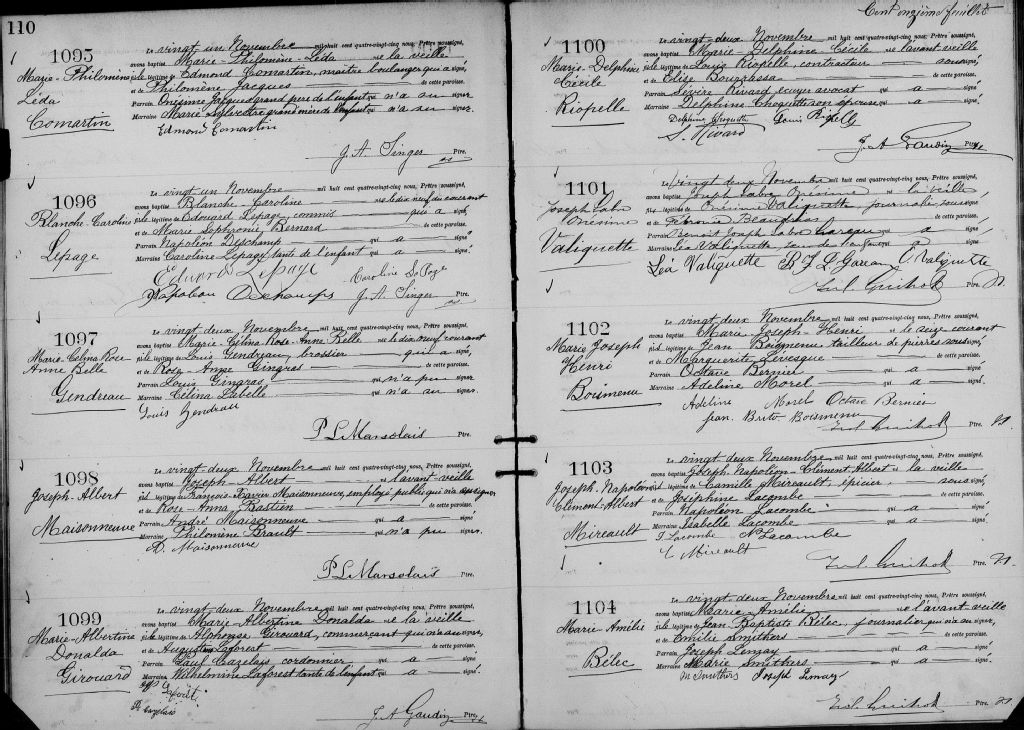 110
1095
Marie-Philomène
Léda
Comartin
Le vingt un Novembre mil huit cent quatre-vingt-cinq nous, Prêtre soussigné,
avons baptisé Marie-Philomène-Léda née la veille
fille légitime d'Edmond Comartin, maître boulanger qui a signé,
et de Philomène Jacques de cette paroisse.
Parrain Onésime Jacques grand père de l'enfant qui n'a su signer.
Marraine Marie Sylvestre grand mère de l'enfant qui n'a su signer.
Edmond Comartin
J. A. Singer Ptre.
1096
Blanche-Caroline
Lepage
Le vingt un Novembre mil huit cent quatre-vingt-cinq nous, Prêtre soussigné,
avons baptisé Blanche-Caroline née le dix neuf du courant
fille légitime d'Edouard Lepage, commis qui a signé,
et de Marie Sophronie Bernard de cette paroisse.
Parrain Napoléon Deschamp qui a signé
Marraine Caroline Lepage, tante de l'enfant qui a signé.
Edward Lepage Caroline LePage
Napoleon Deschamps J. A. Singer Ptre.
1097
Marie-Célina Rose
Anne Bella
Gendreau
Le vingt deux Novembre mil huit cent quatre-vingt-cinq nous, Prêtre soussigné,
avons baptisé Marie-Célina Rose-Anne Belle née le dix neuf courant
fille légitime de Louis Gendreau, brossier qui a signé,
et de Rose-Anne Gingras de cette paroisse.
Parrain Louis Gingras qui n'a pu signer
Marraine Célina Labelle qui n'a su signer.
Louis Gendreau
P L Marsolais Ptre.
1098
Joseph-Albert
Maisonneuve
Le vingt deux Novembre mil huit cent quatre-vingt-cinq nous, Prêtre soussigné,
avons baptisé Joseph-Albert né l'avant-veille
fils légitime de François-Xavier Maisonneuve, employé public qui n'a su signer
et de Rose-Anna Bastien de cette paroisse.
Parrain André Maisonneuve qui a signé
Marraine Philomène Brault qui n'a pu signer.
A. Maisonneuve
P L Marsolais Ptre.
1099
Marie-Albertine
Donalda
Girouard
Le vingt deux Novembre mil huit cent quatre-vingt-cinq nous, Prêtre soussigné,
avons baptisé Marie-Albertine Donalda née la veille
fille légitime d'Alphonse Girouard, commerçant qui n'a su signer,
et de Augustine Laforest de cette paroisse.
Parrain Paul Cazelais cordonnier qui a signé
Marraine Wilhelmine Laforest tante de l'enfant qui a signé.
J. A Gaudin Ptre.
Cent onzième feuillet
1100
Marie-Delphine
Cécile
Riopelle
Le vingt-deux Novembre mil huit cent quatre-vingt-cinq nous, Prêtre soussigné,
avons baptisé Marie-Delphine Cécile née l'avant-veille
fille légitime de Louis Riopelle, contracteur soussigné,
et de Elise Bourrassa de cette paroisse.
Parrain Sévère Rivard écuyer avocat qui a signé
Marraine Delphine Choquette son épouse qui a signé.
Delphine Choquette Louis Riopelle
S. Rivard
J. A Gaudin Ptre.
1101
Joseph Labre
Onésime
Valiquette
Le vingt deux Novembre mil huit cent quatre-vingt-cinq nous, Prêtre soussigné,
avons baptisé Joseph Labre Onésime né la veille,
fils légitime d'Onésime Valiquette journalier soussigné
et de Beauchas de cette paroisse.
Parrain Benoit Joseph Labre Gareau qui a signé
Marraine Léa Valiquette, soeur de l'enfant qui a signé.
Léa Valiquette B. J. L Gareau O Valiquette
Ptre.
1102
Marie Joseph
Henri
Boismenu
Le vingt deux Novembre mil huit cent quatre-vingt-cinq nous, Prêtre soussigné,
avons baptisé Marie-Joseph-Henri né le seize courant
fils légitime de Jean Boismenu tailleur de pierres soussigné,
et de Marguerite Lévesque de cette paroisse.
Parrain Octave Bernier qui a signé
Marraine Adeline Morel qui a signé.
Adeline Morel Octave Bernier
Jean. Brito Boismenu
Ptre.
1103
Joseph-Napoléon
Clément-Albert
Mireault
Le vingt-deux Novembre mil huit cent quatre-vingt-cinq nous, Prêtre soussigné,
avons baptisé Joseph-Napoléon-Clément Albert né la veille
fils légitime de Camille Mireault, épicier soussigné,
et de Joséphine Lacombe de cette paroisse.
Parrain Napoléon Lacombe qui a signé
Marraine Isabelle Lacombe qui a signé.
I Lacombe N Lacombe
C Mireault
Ptre.
1104
Marie-Amélie
Bélec
Le vingt-deux Novembre mil huit cent quatre-vingt-cinq nous, Prêtre soussigné,
avons baptisé Marie-Amélie née l'avant-veille
fille légitime de Jean Baptiste Bélec, journalier qui n'a su signer,
et de Emilie Smithers de cette paroisse.
Parrain Joseph Lemay qui a signé
Marraine Marie Smithers qui a signé.
M Smithers Joseph Lemay
Ptre.